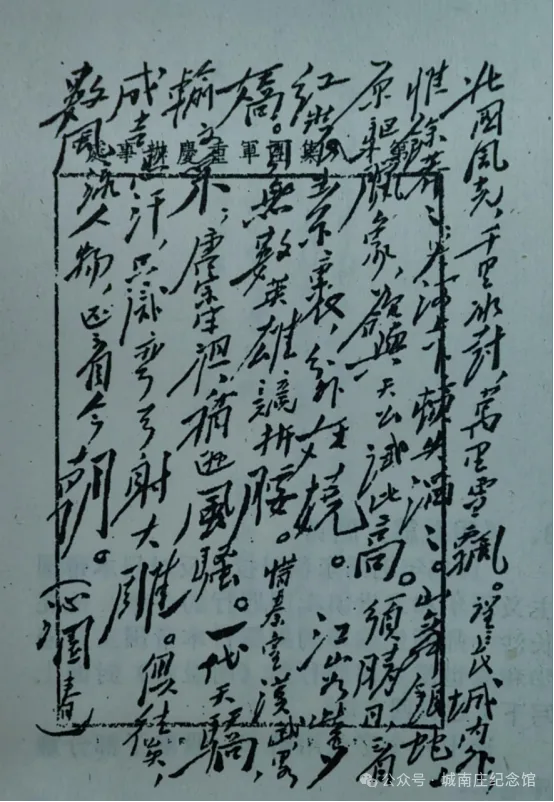 第十八集團軍重慶辦事處
北國風光,千里冰封,萬里雪飄。望長城内外,
惟餘莽々;大河上下,頓失滔々。山舞銀蛇,
原驅臘象,欲與天公試比高。須晴日,看
红装素裹,分外妖娆。江山如此多
嬌,引無數英雄競折腰。惜秦皇漢武,略
輸文采;唐宗宋祖,稍遜風騷。一代天驕,
成吉思汗,只識彎弓射大雕。俱往矣,
數風流人物,还看今朝。(沁園春)
公众号·城南庄纪念馆